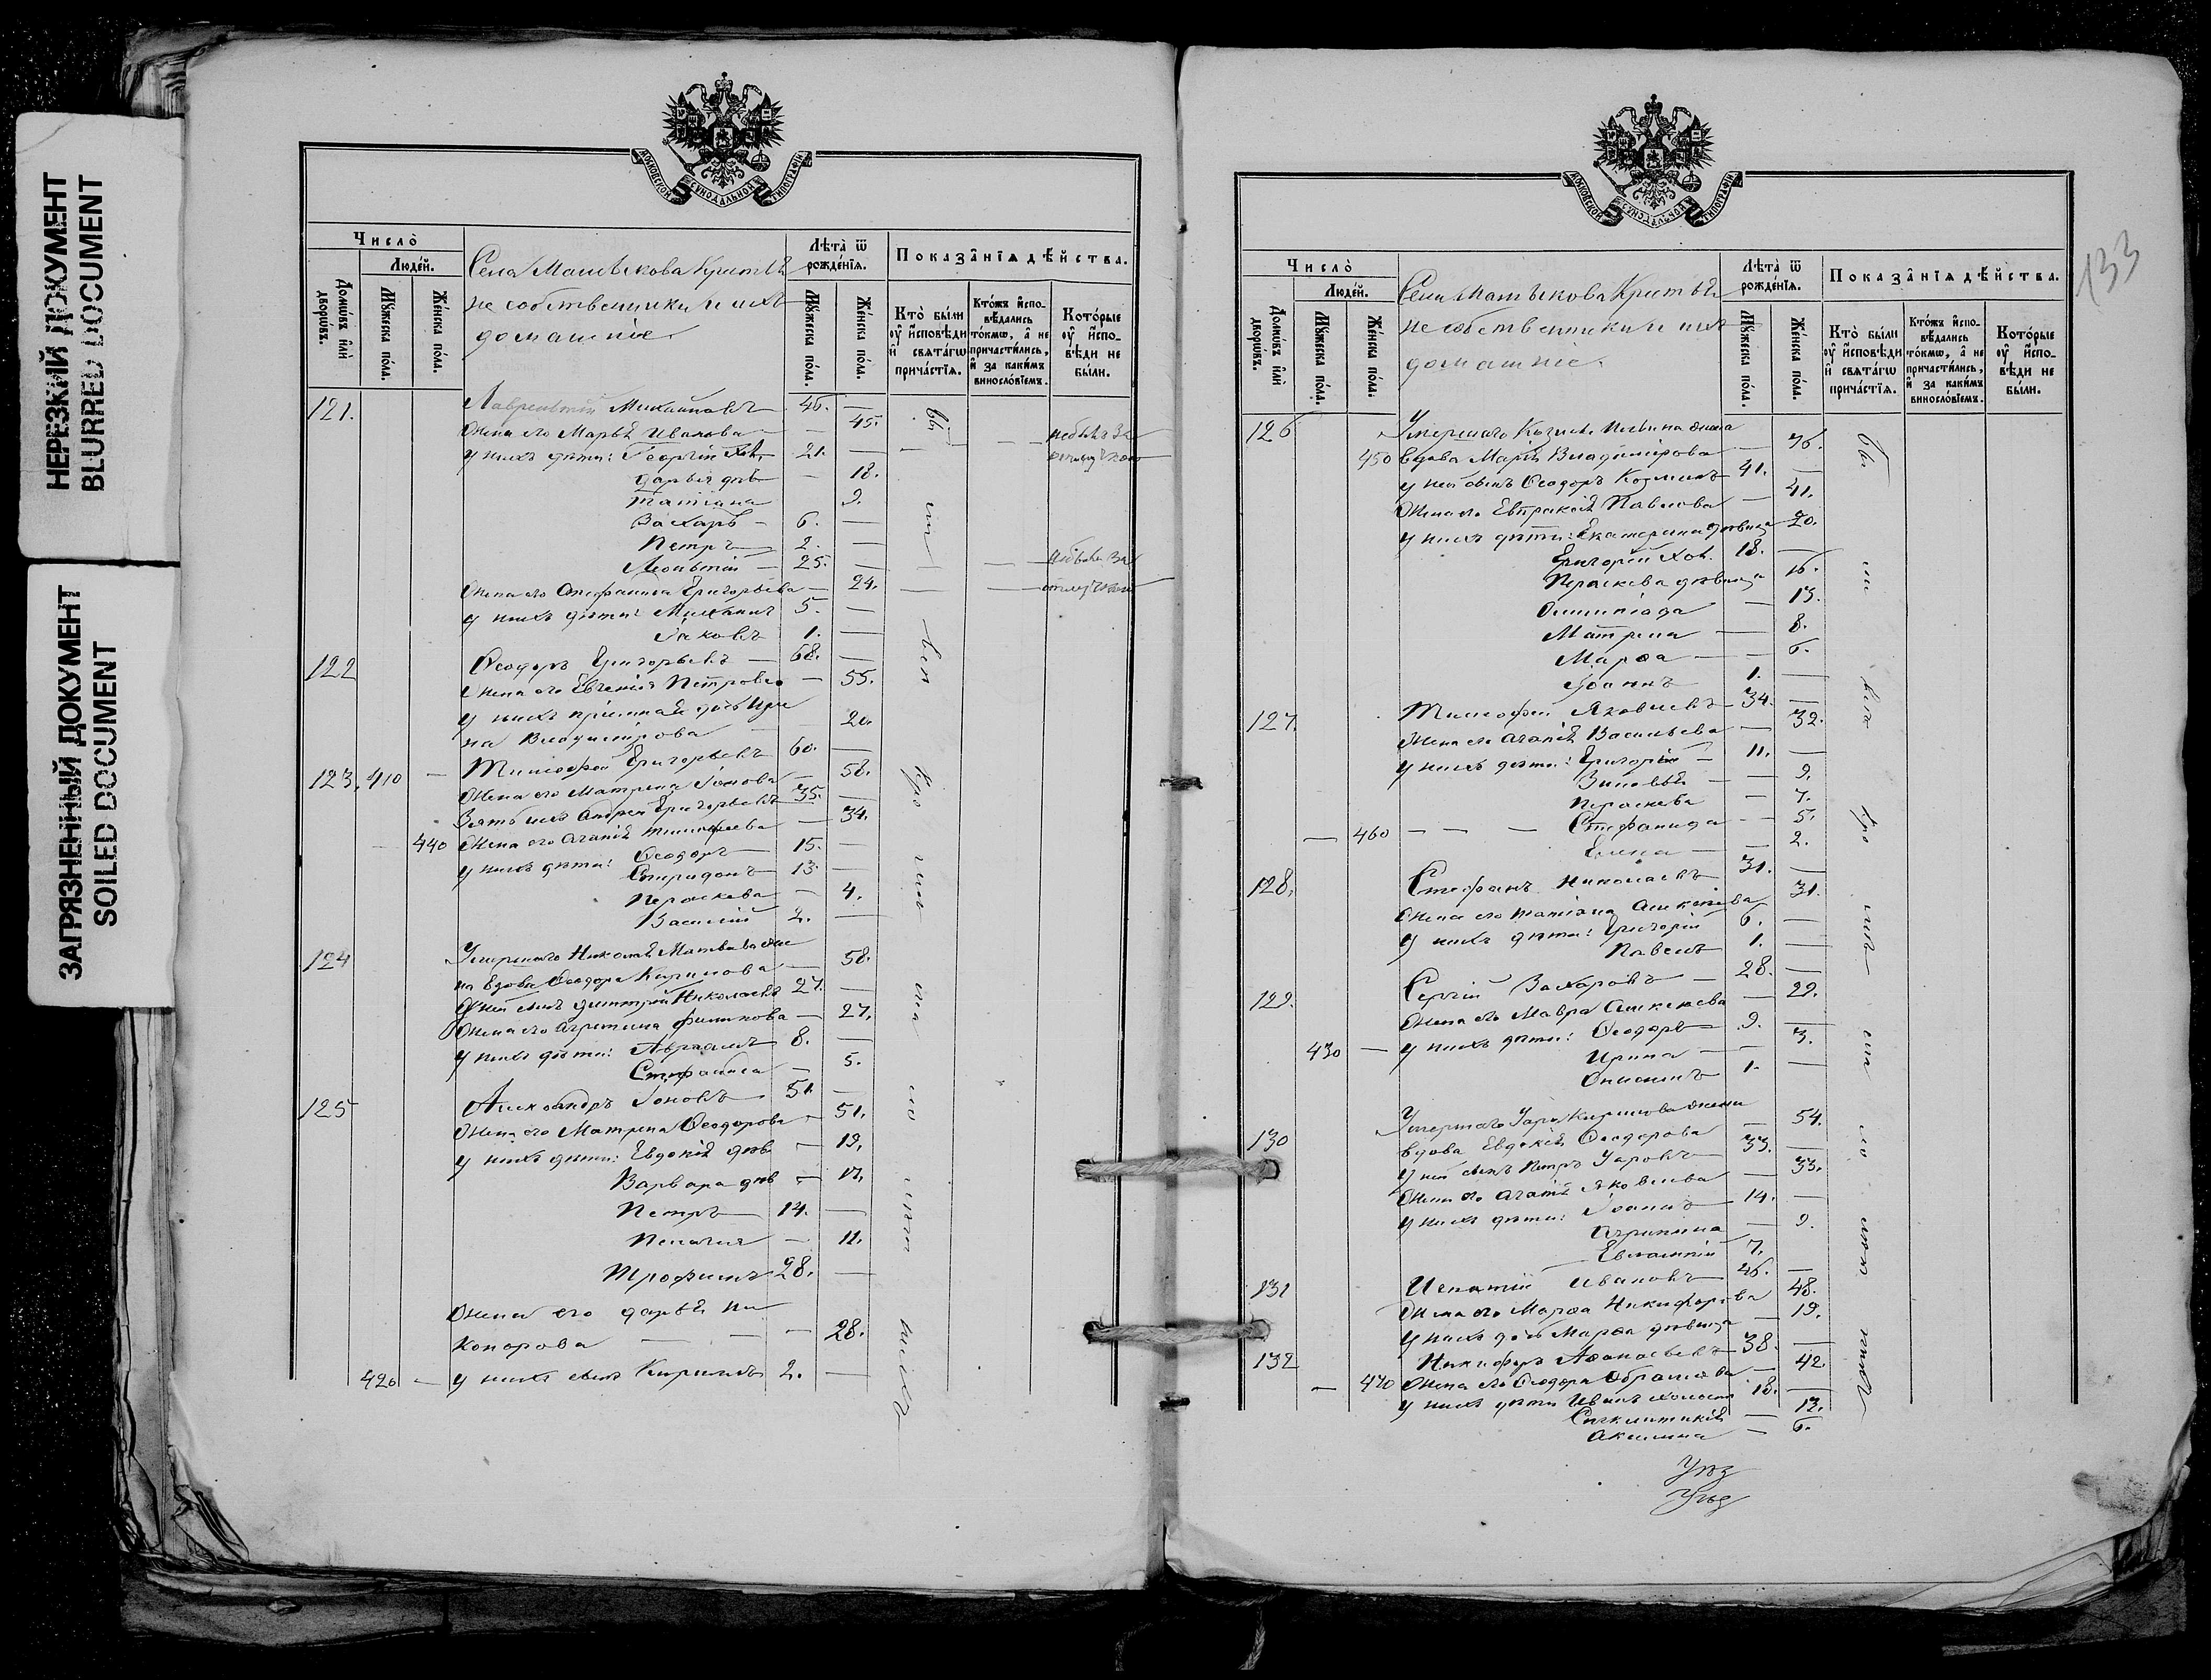 НЕРЕЗКИЙ ДОКУМЕНТ
BLURRED DOCUMENT
ЗАГРЯЗНЕННЫЙ ДОКУМЕНТ
SOILED DOCUMENT
МОСКОВСКОЙ СѴНОДАЛЬНОЙ ТИПОГРАФІИ
Число̀
Люде́й.
Домѡ́въ и҆лѝ дворѡ́въ.
Мꙋ́жеска по́ла.
Же́нска по́ла.
Села Матыскова Кресть
не собственники и ихъ
домашніе
Лѣта̀ ѿ рожде́нїѧ.
Мꙋ́жеска по́ла.
Же́нска по́ла.
Показа̑нїѧ дѣ́йства.
Кто̀ бы́ли оу҆ и҆сповѣ́ди и҆ свѧта́гѡ прича́стїѧ.
Кто́жъ и҆спо- вѣ́дались то́кмѡ, а҆ не причасти́лись, и҆ за каки́мъ винослѡ́вїемъ.
Кото́рые оу҆ и҆спо- вѣ́ди не бы́ли.
121. Лаврентій Михайловъ 46. —
Жена его Марья Иванова — 45. не былъ за
у нихъ дѣти: Георгій хол. 21. —
Дарья дѣв — 18.
Татіана 9.
Захаръ — 6. —
Петръ 2. —
Леонтій — 25. — не былъ за
Жена его Стефанида Григорьева — 24.
у нихъ дѣти: Михаилъ 5. —
Іаковъ 1. —
122 Ѳеодоръ Григорьевъ — 68. —
Жена его Евгенія Петрова — 55.
у нихъ пріемная дочь Ири
на Владимірова — 20.
123. 410 — Тимоѳей Григорьевъ 60. —
Жена его Матрена Іонова — 58.
Зять ихъ Андрей Григорьевъ 35. —
440 Жена его Агапія Тимоѳеева — 34.
у нихъ дѣти: Ѳеодоръ 15. —
Спиридонъ 13. —
Параскева — 4.
Василій 2. —
124 Умершаго Николая Матвѣева же
на вдова Ѳеодора Кирилова — 58.
У ней сынъ Димитрій Николаевъ 27. —
Жена его Агрипина Филипова — 27.
у нихъ дѣти: Авраамъ 8. —
Стефанида — 5.
125 Александръ Іоновъ 51. —
Жена его Матрена Ѳеодорова — 51.
у нихъ дѣти: Евдокія дѣв — 19.
Варвара дѣв — 17.
Петръ 14. —
Пелагія — 11.
Трофимъ 28. —
Жена его Дарья Ни
конорова — — — 28.
420 — у нихъ сынъ Кирилъ 2. —
МОСКОВСКОЙ СѴНОДАЛЬНОЙ ТИПОГРАФІИ
133
Число̀
Люде́й.
Домѡ́въ и҆лѝ дворѡ́въ.
Мꙋ́жеска по́ла.
Же́нска по́ла.
Села Матыскова Кресть
не собственники и ихъ
домашніе.
Лѣта̀ ѿ рожде́нїѧ.
Мꙋ́жеска по́ла.
Же́нска по́ла.
Показа̑нїѧ дѣ́йства.
Кто̀ бы́ли оу҆ и҆сповѣ́ди и҆ свѧта́гѡ прича́стїѧ.
Кто́жъ и҆спо- вѣ́дались то́кмѡ, а҆ не причасти́лись, и҆ за каки́мъ винослѡ́вїемъ.
Кото́рые оу҆ и҆спо- вѣ́ди не бы́ли.
126 Умершаго Козмы жена
450 вдова Марія Владимірова — 76.
у ней сынъ Ѳеодоръ Козминъ 41. —
Жена его Евпраксія Павлова — 41.
у нихъ дѣти: Екатерина дѣвица 20.
Григорій хол. 18. —
Параскева дѣвица 16.
Олимпіада — 13.
Матрена — 8.
Марѳа — 6.
Іоаннъ 1. —
127. Тимоѳей Яковлевъ 34. —
Жена его Агапія Васильева — 32.
у нихъ дѣти: Григорій — 11. —
Зиновья — 9.
Параскева — 7.
— 460 — — — Стефанида — 5.
Елена — 2.
128. Стефанъ Николаевъ 31. —
Жена его Татіана Алексѣева 31.
у нихъ дѣти: Григорій 6. —
Павелъ 1. —
129. Сергій Захаровъ — 28. —
Жена его Мавра Алексѣева — 29.
430 — у нихъ дѣти: Ѳеодоръ 9. —
Ирина — 3.
Онисимъ 1. —
130 Умершаго Уара Кирилова жена
вдова Евдокія Ѳеодорова — 54.
У ней сынъ Петръ Уаровъ 33. —
Жена его Агапія Яковлева — 33.
у нихъ дѣти: Іоаннъ 14. —
Агрипина — 9.
Евлампій 7.
131 Игнатій Ивановъ 46. —
Жена его Марѳа Никифорова 48.
у нихъ дочь Марѳа дѣвица — 19.
132 Никифоръ Аѳанасьевъ 38. —
— 470 Жена его Ѳеодора Абрамова — 42.
у нихъ дѣти Иванъ холост 18. —
Синклитикія — 12.
Акилина — 6.